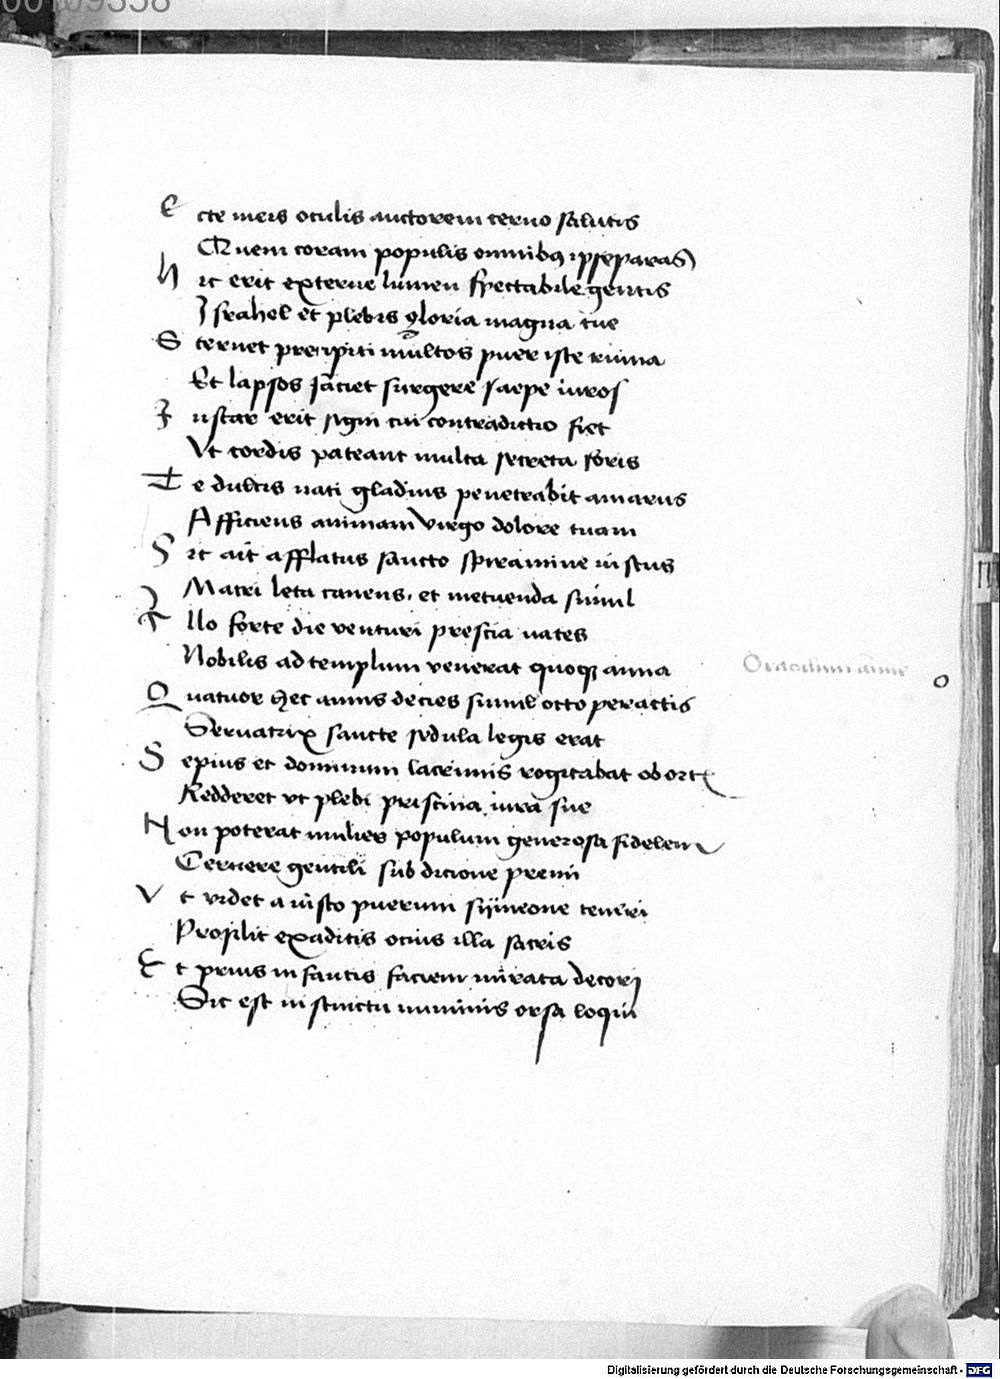 00109358
E cce meis oculis auctorem cerno salutis
Quem coram populis omnibus ipse paras
H ic erit externe lumen spectabile gentis
Israhel et plebis gloria magna tue
S ternet precipiti multos puer iste ruina
Et lapsos faciet surgere saepe viros
I nstar erit signi cui contradictio fiet
Vt cordis pateant multa secreta foris
T e dulcis nati gladius penetrabit amarus
Afficiens animam virgo dolore tuam
S ic ait afflatus sancto spiramine iustus
Matri leta canens, et metuenda simul
I llo forte die venturi prescia uates
Nobilis ad templum venerat quoque anna
Oraculum anne
Q uatuor hec annis decies simul octo peractis
Seruatrix sancte sedula legis erat
S epius et dominum lacrimis rogitabat obortis
Redderet vt plebi pristina iura sue
N on poterat mulier populum generosa fidelem
Cernere gentili sub dicione premi
V t videt a iusto puerum symeone teneri
Prosilit ex aditis ocius illa sacris
E t prius infantis faciem mirata decori
Sic est instinctu numinis orsa loqui
Digitalisierung gefördert durch die Deutsche Forschungsgemeinschaft - DFG